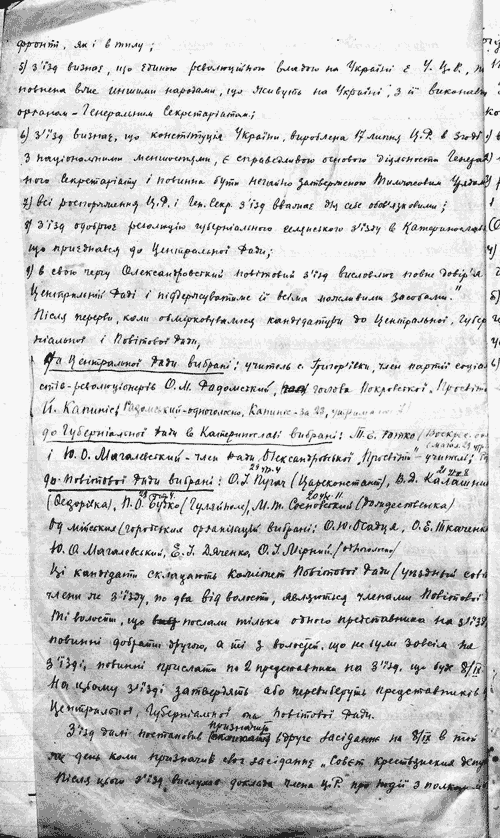 фронті, як і в тилу;
5) З'їзд визнає, що єдиною революційною владою на Україні є У.Ц.Р.,
повнена вже иншими народами, що живуть на Україні, з її виконавч
органом - Генеральним Секретаріатом;
6) З'їзд визнає, що конституція України, вироблена 17 липня Ц.Р. в згоді
з національними меншостями, є справедливою основою діяльности Генера
ного Секретаріату і повинна бути негайно затвержена Тимчасовим Урядом
7) всі роспорядження Ц.Р. і Ген.Секр. з'їзд вважає для себе обов'язковими;
8) З'їзд одобрює резолюцію губерніального селянського з'їзду в Катеринославі
що приєднався до Центральної Ради;
9) в свою чергу Олександровський повітовий з'їзд висловлює повне довір'я
Центральній Раді і підтержуватиме її всіма можливими засобами."
Після перерви, коли обмірковувались кандідатури до Центральної, Губер
ніальної і Повітової Ради,
До Центральної Ради вибрані: учитель с. Григор'ївки, член партії соціа
стів-революціонерів О.М. Радомський, голова Покровської "Просвіти
Й. Капиніс Радомський-одноголосно, Капиніс-за 23,
до Губерніальної Ради в Катеринославі вибрані: Т.Е.
і Ю.О. Магалевський - член Ради Олександровської "Просвіти" - учитель;
до Повітової Ради вибрані: О.І. Пугач (Царєконстант), В.Д. Калашник
(Федорівка), П.О. (Гуляйполе), М.Т. Сосновський (Рождественка)
Од мійських городських організацій вибрані: О.Ю. О.Е. Ткаченко
Ю.О. Магалевський, Е.І. Дяченко, О.І. Мірний /одноголосно/
Ці кандідати складають комітет Повітової Ради /уездный сов
члени ж з'їзду, по два від волости, являються членами Повітової
Ті волости, що послали тільки одного представника на з'їзд
повинні добрати другого, а ті з волостей, що не були зовсім на
з'їзді, повинні прислати по 2 представника на з'їзд, що буде 8/IX
На цьому з'їзді затвердять або перевиберуть представників
Центральної, Губерніальної та Повітової Ради.
З'їзд далі постановив призначить вдруге засідання на 8/IX в той
же день коли призначив своє засіданнє "Совєт крестьянских депу
Після цього з'їзд вислухав доклада члена Ц.Р. про події з полком